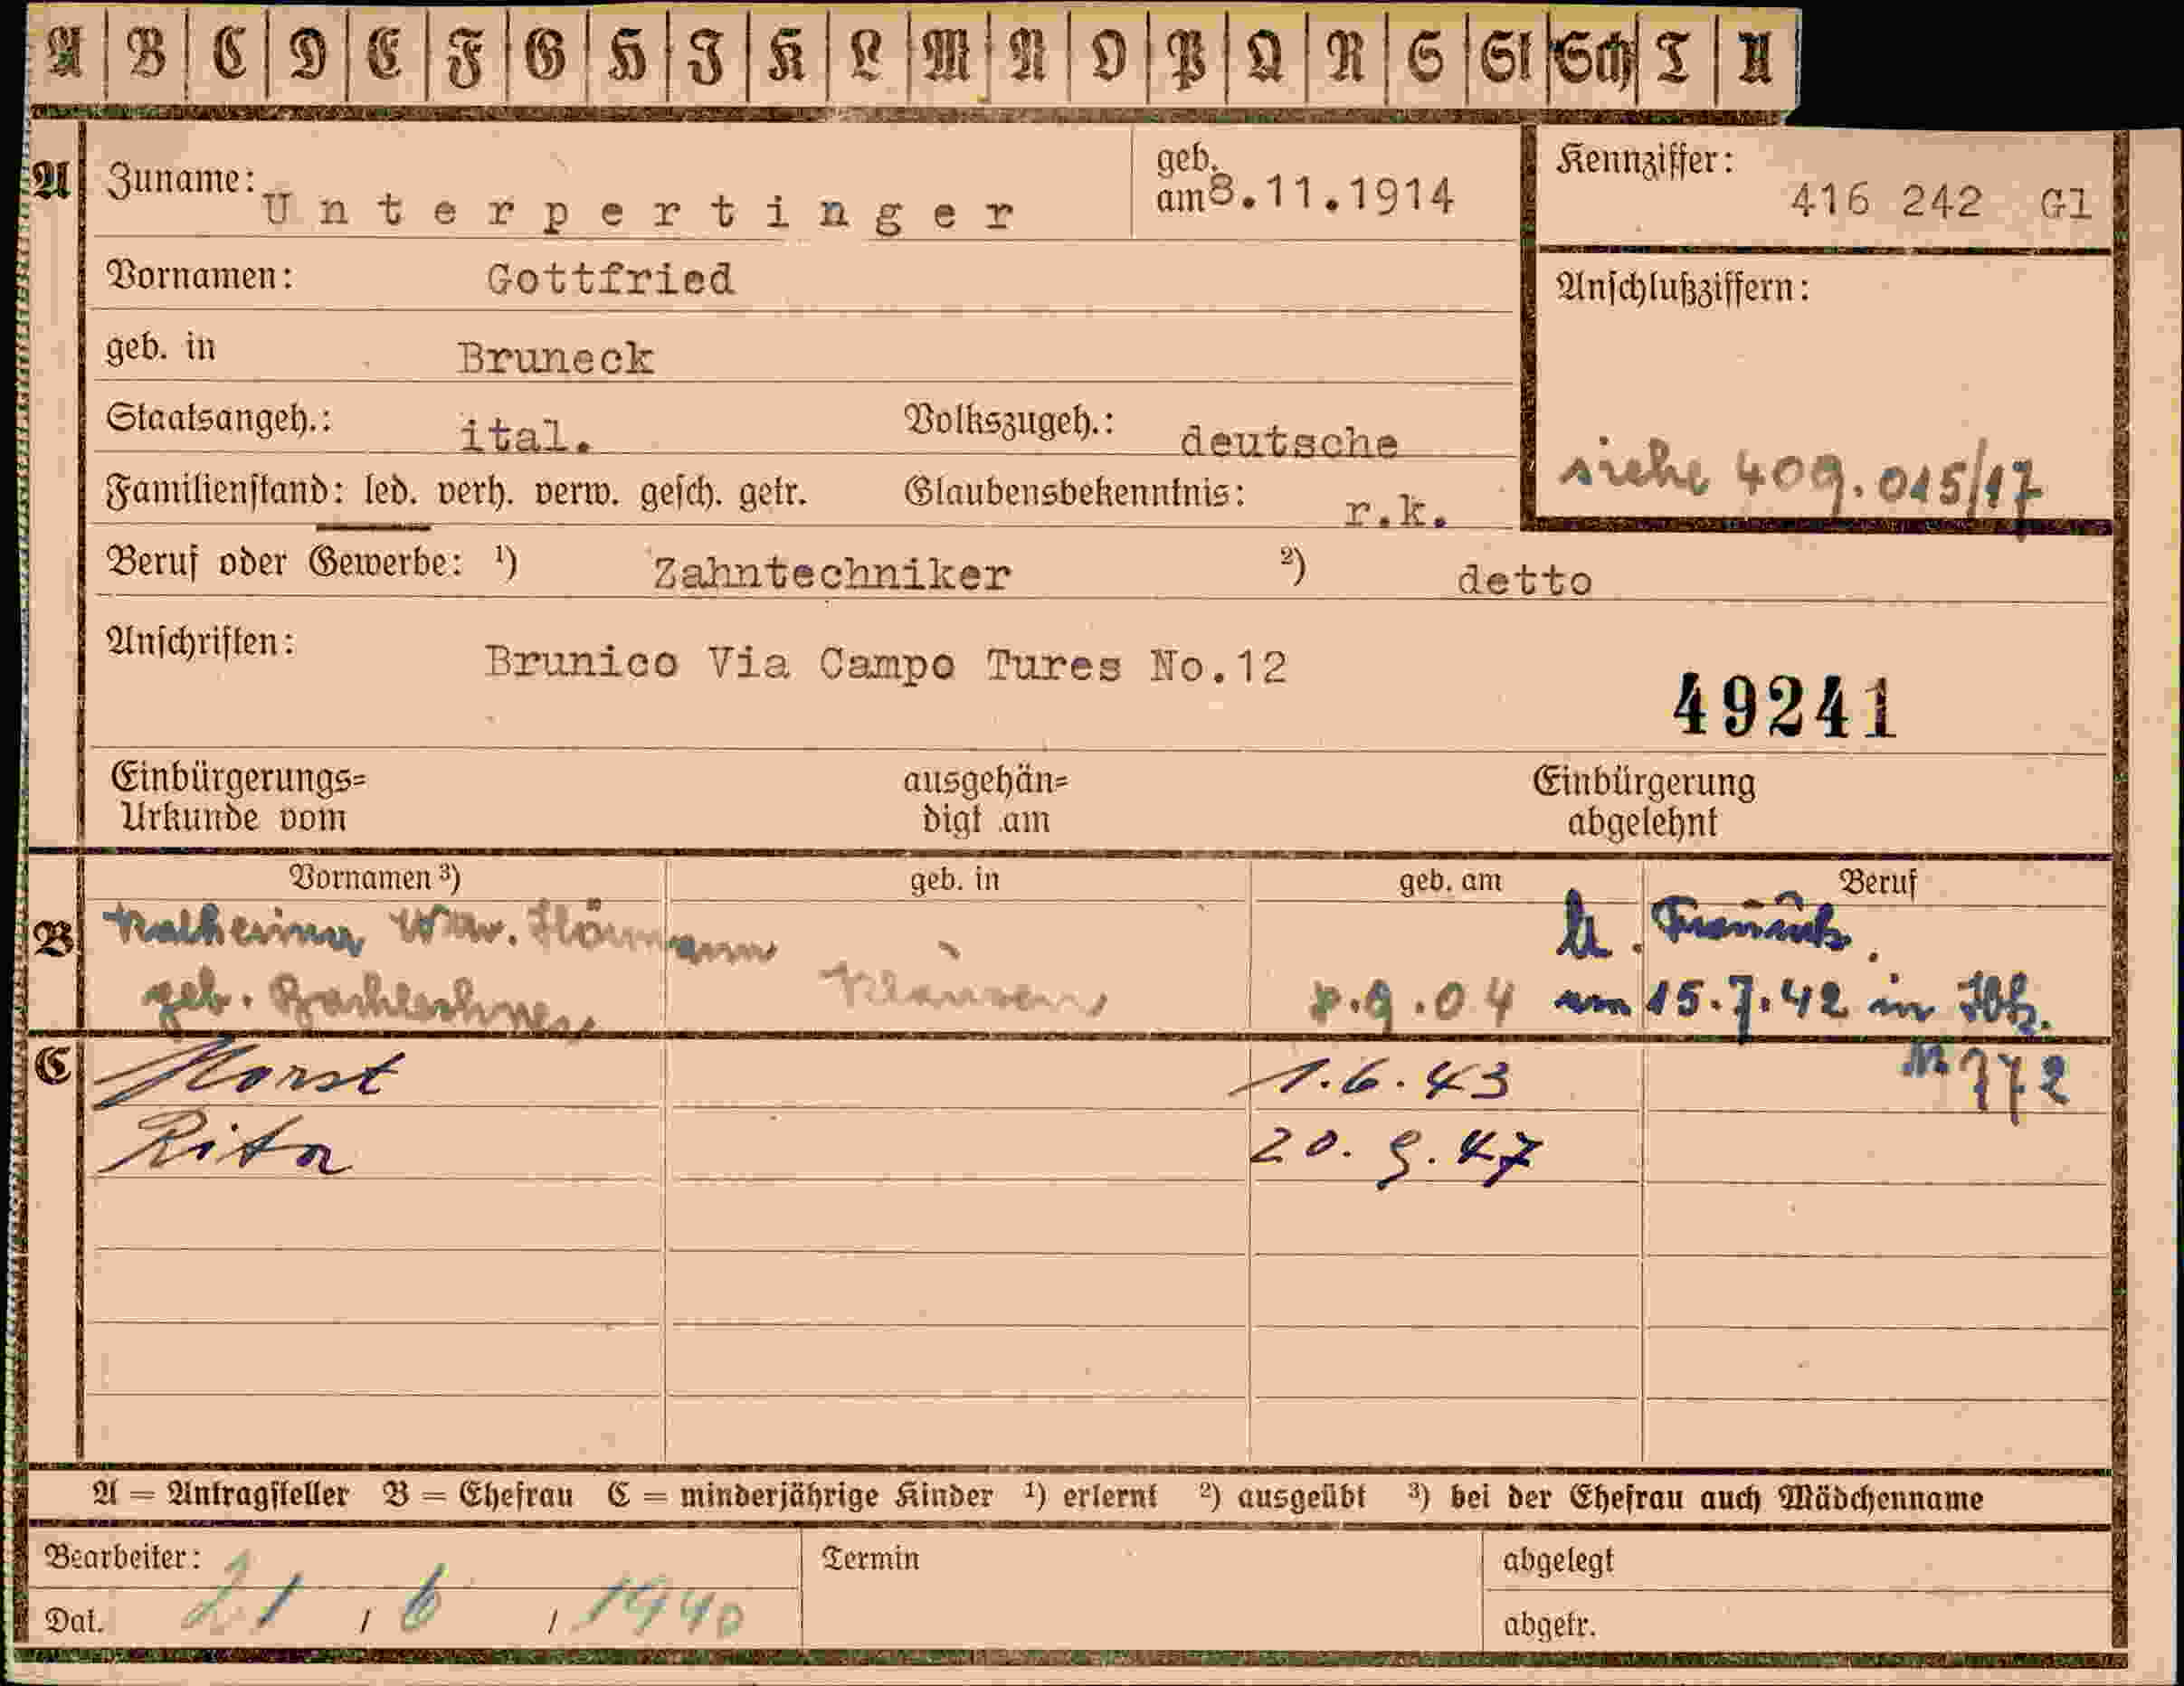 A B C D E F G H J K L M N O P Q R S St Sch T U
A Zuname: Unterpertinger geb. am 8.11.1914 Kennziffer: 416 242 Gl
Vornamen: Gottfried Anschlußziffern:
geb. in Bruneck
Staatsangeh.: ital. Volkszugeh.: deutsche
siehe 409.015/17
Familienstand: led. verh. verw. gesch. getr. Glaubensbekenntnis: r.k.
Beruf oder Gewerbe: ¹) Zahntechniker ²) detto
Anschriften: Brunico Via Campo Tures No.12
49241
Einbürgerungs= ausgehän= Einbürgerung
Urkunde vom digt am abgelehnt
Vornamen ³) geb. in geb. am Beruf
B Katherina Ww.
geb. Klausen .9.04 am 15.7.42 in
C Horst 1.6.43 772
Rita 20. 9. 47
A = Antragsteller B = Ehefrau C = minderjährige Kinder ¹) erlernt ²) ausgeübt ³) bei der Ehefrau auch Mädchenname
Bearbeiter: Termin abgelegt
Dat. 21 / 6 / 1940 abgetr.